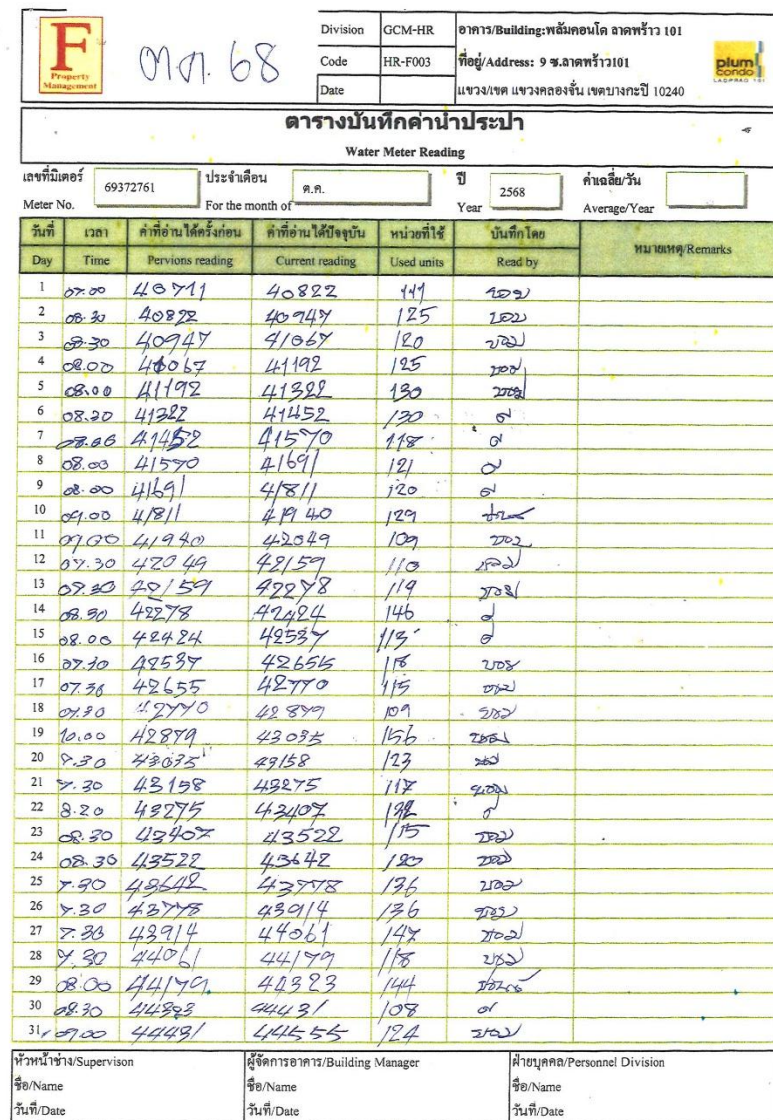 F
Property
Management
ต.ค. 68
Division GCM-HR อาคาร/Building:พลัมคอนโด ลาดพร้าว 101
Code HR-F003 ที่อยู่/Address: 9 ซ.ลาดพร้าว101
Date แขวง/เขต แขวงคลองจั่น เขตบางกะปิ 10240
plum
condo
LADPRAO 101
ตารางบันทึกค่าน้ำประปา
Water Meter Reading
เลขที่มิเตอร์ 69372761 ประจำเดือน ต.ค. ปี 2568 ค่าเฉลี่ย/วัน
Meter No. For the month of Year Average/Year
วันที่ เวลา ค่าที่อ่านได้ครั้งก่อน ค่าที่อ่านได้ปัจจุบัน หน่วยที่ใช้ บันทึกโดย หมายเหตุ/Remarks
Day Time Pervions reading Current reading Used units Read by
1 07.00 40711 40822 111
2 08.30 40822 40947 125
3 08.30 40947 41067 120
4 08.00 41067 41192 125
5 08.00 41192 41322 130
6 08.20 41322 41452 130
7 08.00 41452 41570 118
8 08.00 41570 41691 121
9 08.00 41691 41811 120
10 09.00 41811 41940 129
11 09.00 41940 42049 109
12 07.30 42049 42159 110
13 07.30 42159 42278 119
14 08.30 42278 42424 146
15 08.00 42424 42537 113
16 07.30 42537 42655 118
17 07.30 42655 42770 115
18 07.30 42770 42879 109
19 10.00 42879 43035 156
20 7.30 43035 43158 123
21 7.30 43158 43275 117
22 8.20 43275 43407 132
23 08.30 43407 43522 115
24 08.30 43522 43642 120
25 7.30 43642 43778 136
26 7.30 43778 43914 136
27 7.30 43914 44061 147
28 7.30 44061 44179 118
29 08.00 44179 44323 144
30 08.30 44323 44431 108
31 07.00 44431 44555 124
หัวหน้าช่าง/Supervison ผู้จัดการอาคาร/Building Manager ฝ่ายบุคคล/Personnel Division
ชื่อ/Name ชื่อ/Name ชื่อ/Name
วันที่/Date วันที่/Date วันที่/Date